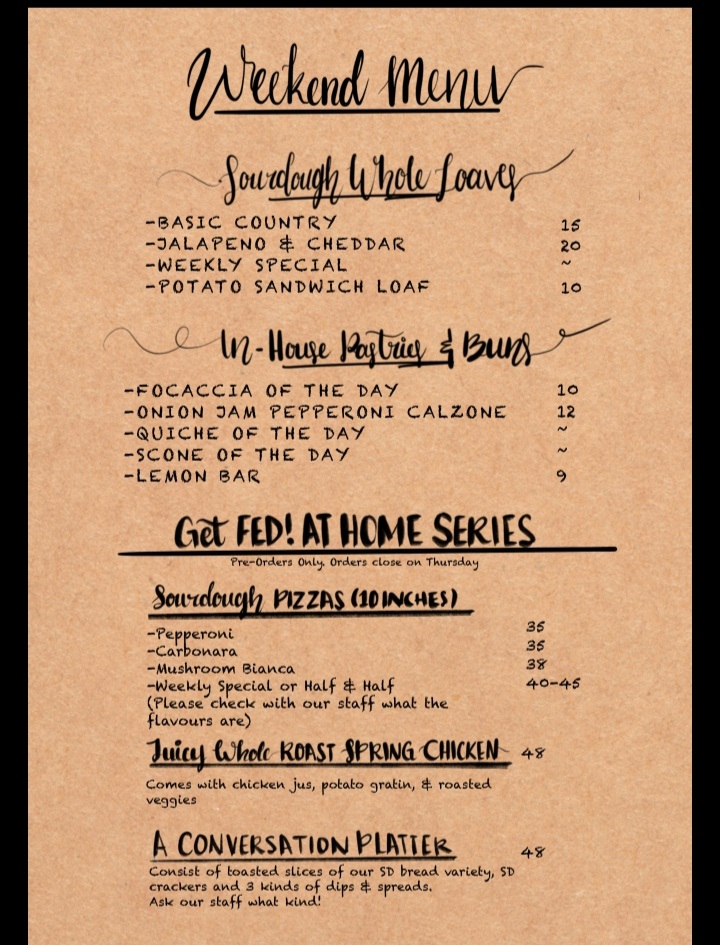 Weekend Menu
Sourdough Whole Loaves
-BASIC COUNTRY 15
-JALAPENO & CHEDDAR 20
-WEEKLY SPECIAL ~
-POTATO SANDWICH LOAF 10
In-House Pastries & Buns
-FOCACCIA OF THE DAY 10
-ONION JAM PEPPERONI CALZONE 12
-QUICHE OF THE DAY ~
-SCONE OF THE DAY ~
-LEMON BAR 9
Get FED! AT HOME SERIES
Pre-Orders Only. Orders close on Thursday
Sourdough PIZZAS (10 INCHES)
-Pepperoni 35
-Carbonara 35
-Mushroom Bianca 38
-Weekly Special or Half & Half 40-45
(Please check with our staff what the
flavours are)
Juicy Whole ROAST SPRING CHICKEN 48
Comes with chicken jus, potato gratin, & roasted
veggies
A CONVERSATION PLATTER 48
Consist of toasted slices of our SD bread variety, SD
crackers and 3 kinds of dips & spreads.
Ask our staff what kind!